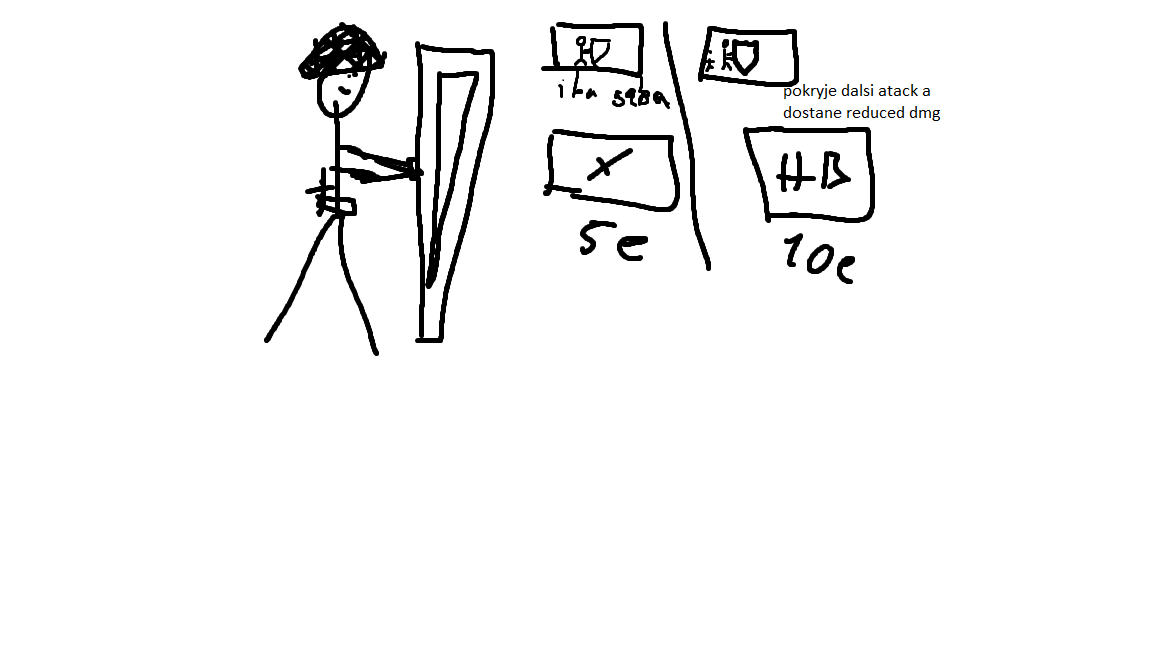 pokryje dalsi atack a
dostane reduced dmg
5e
10e